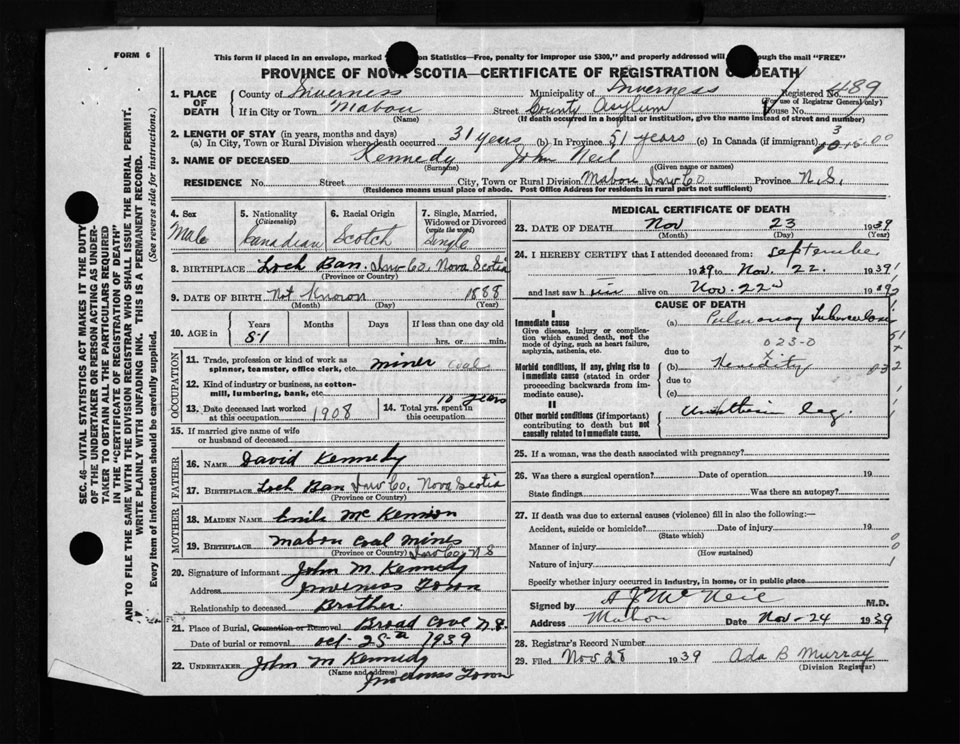 FORM 6
This form if placed in an envelope, marked Statistics—Free, penalty for improper use $300," and properly addressed will through the mail "FREE"
PROVINCE OF NOVA SCOTIA—CERTIFICATE OF REGISTRATION OF DEATH
1. PLACE OF DEATH County of Inverness Municipality of Inverness Registered No. 489
(For use of Registrar General only)
If in City or Town Mabou Street County Asylum House No.
(Name) (If death occurred in a hospital or institution, give the name instead of street and number)
2. LENGTH OF STAY (in years, months and days)
(a) In City, Town or Rural Division where death occurred 31 years (b) In Province 51 years (c) In Canada (if immigrant)
3. NAME OF DECEASED Kennedy John Neil
(Surname) (Given name or names)
RESIDENCE No. Street City, Town or Rural Division Mabou Inv Co Province N.S.
(Residence means usual place of abode. Post Office Address for residents in rural parts not sufficient)
4. Sex Male
5. Nationality (Citizenship) Canadian
6. Racial Origin Scotch
7. Single, Married, Widowed or Divorced (write the word) Single
8. BIRTHPLACE Loch Ban. Inv Co, Nova Scotia
(Province or Country)
9. DATE OF BIRTH Not Known 1888
(Month) (Day) (Year)
10. AGE in Years Months Days If less than one day old
51 hrs. or min.
OCCUPATION
11. Trade, profession or kind of work as spinner, teamster, office clerk, etc. miner coal
12. Kind of industry or business, as cotton-mill, lumbering, bank, etc.
13. Date deceased last worked at this occupation 1908
14. Total yrs. spent in this occupation 10 years
15. If married give name of wife or husband of deceased
FATHER
16. NAME David Kennedy
17. BIRTHPLACE Loch Ban Inv Co, Nova Scotia
(Province or Country)
MOTHER
18. MAIDEN NAME
19. BIRTHPLACE Mabou Coal Mines
(Province or Country) Inv Co, N S
20. Signature of informant John M. Kennedy
Address Inverness Town
Relationship to deceased Brother
21. Place of Burial, Cremation or Removal Broad Cove N.S.
Date of burial or removal 1939
22. UNDERTAKER John M Kennedy
(Name and address) Inverness Town
MEDICAL CERTIFICATE OF DEATH
23. DATE OF DEATH Nov 23 1939
(Month) (Day) (Year)
24. I HEREBY CERTIFY that I attended deceased from: September
1939 to Nov. 22. 1939
and last saw h alive on Nov. 22 1939
CAUSE OF DEATH
I
Immediate cause
Give disease, injury or complication which caused death, not the mode of dying, such as heart failure, asphyxia, asthenia, etc.
(a) Pulmonary Tuberculosis
023-0
due to
Morbid conditions, if any, giving rise to immediate cause (stated in order proceeding backwards from immediate cause).
(b) Heredity
due to
(c)
II
Other morbid conditions (if important) contributing to death but not causally related to immediate cause.
25. If a woman, was the death associated with pregnancy?
26. Was there a surgical operation? Date of operation 19
State findings Was there an autopsy?
27. If death was due to external causes (violence) fill in also the following:—
Accident, suicide or homicide? Date of injury 19
(State which)
Manner of injury
(How sustained)
Nature of injury
Specify whether injury occurred in industry, in home, or in public place
Signed by A J McNeil M.D.
Address Mabou Date Nov-24 1939
28. Registrar's Record Number
29. Filed Nov 28 1939 Ada B Murray
(Division Registrar)
SEC. 46—VITAL STATISTICS ACT MAKES IT THE DUTY
OF THE UNDERTAKER OR PERSON ACTING AS UNDERTAKER
TO OBTAIN ALL THE PARTICULARS REQUIRED
IN THE "CERTIFICATE OF REGISTRATION OF DEATH"
AND TO FILE THE SAME WITH THE DIVISION REGISTRAR WHO SHALL ISSUE THE BURIAL PERMIT.
WRITE PLAINLY WITH UNFADING INK. THIS IS A PERMANENT RECORD.
Every item of information should be carefully supplied. (See reverse side for instructions.)